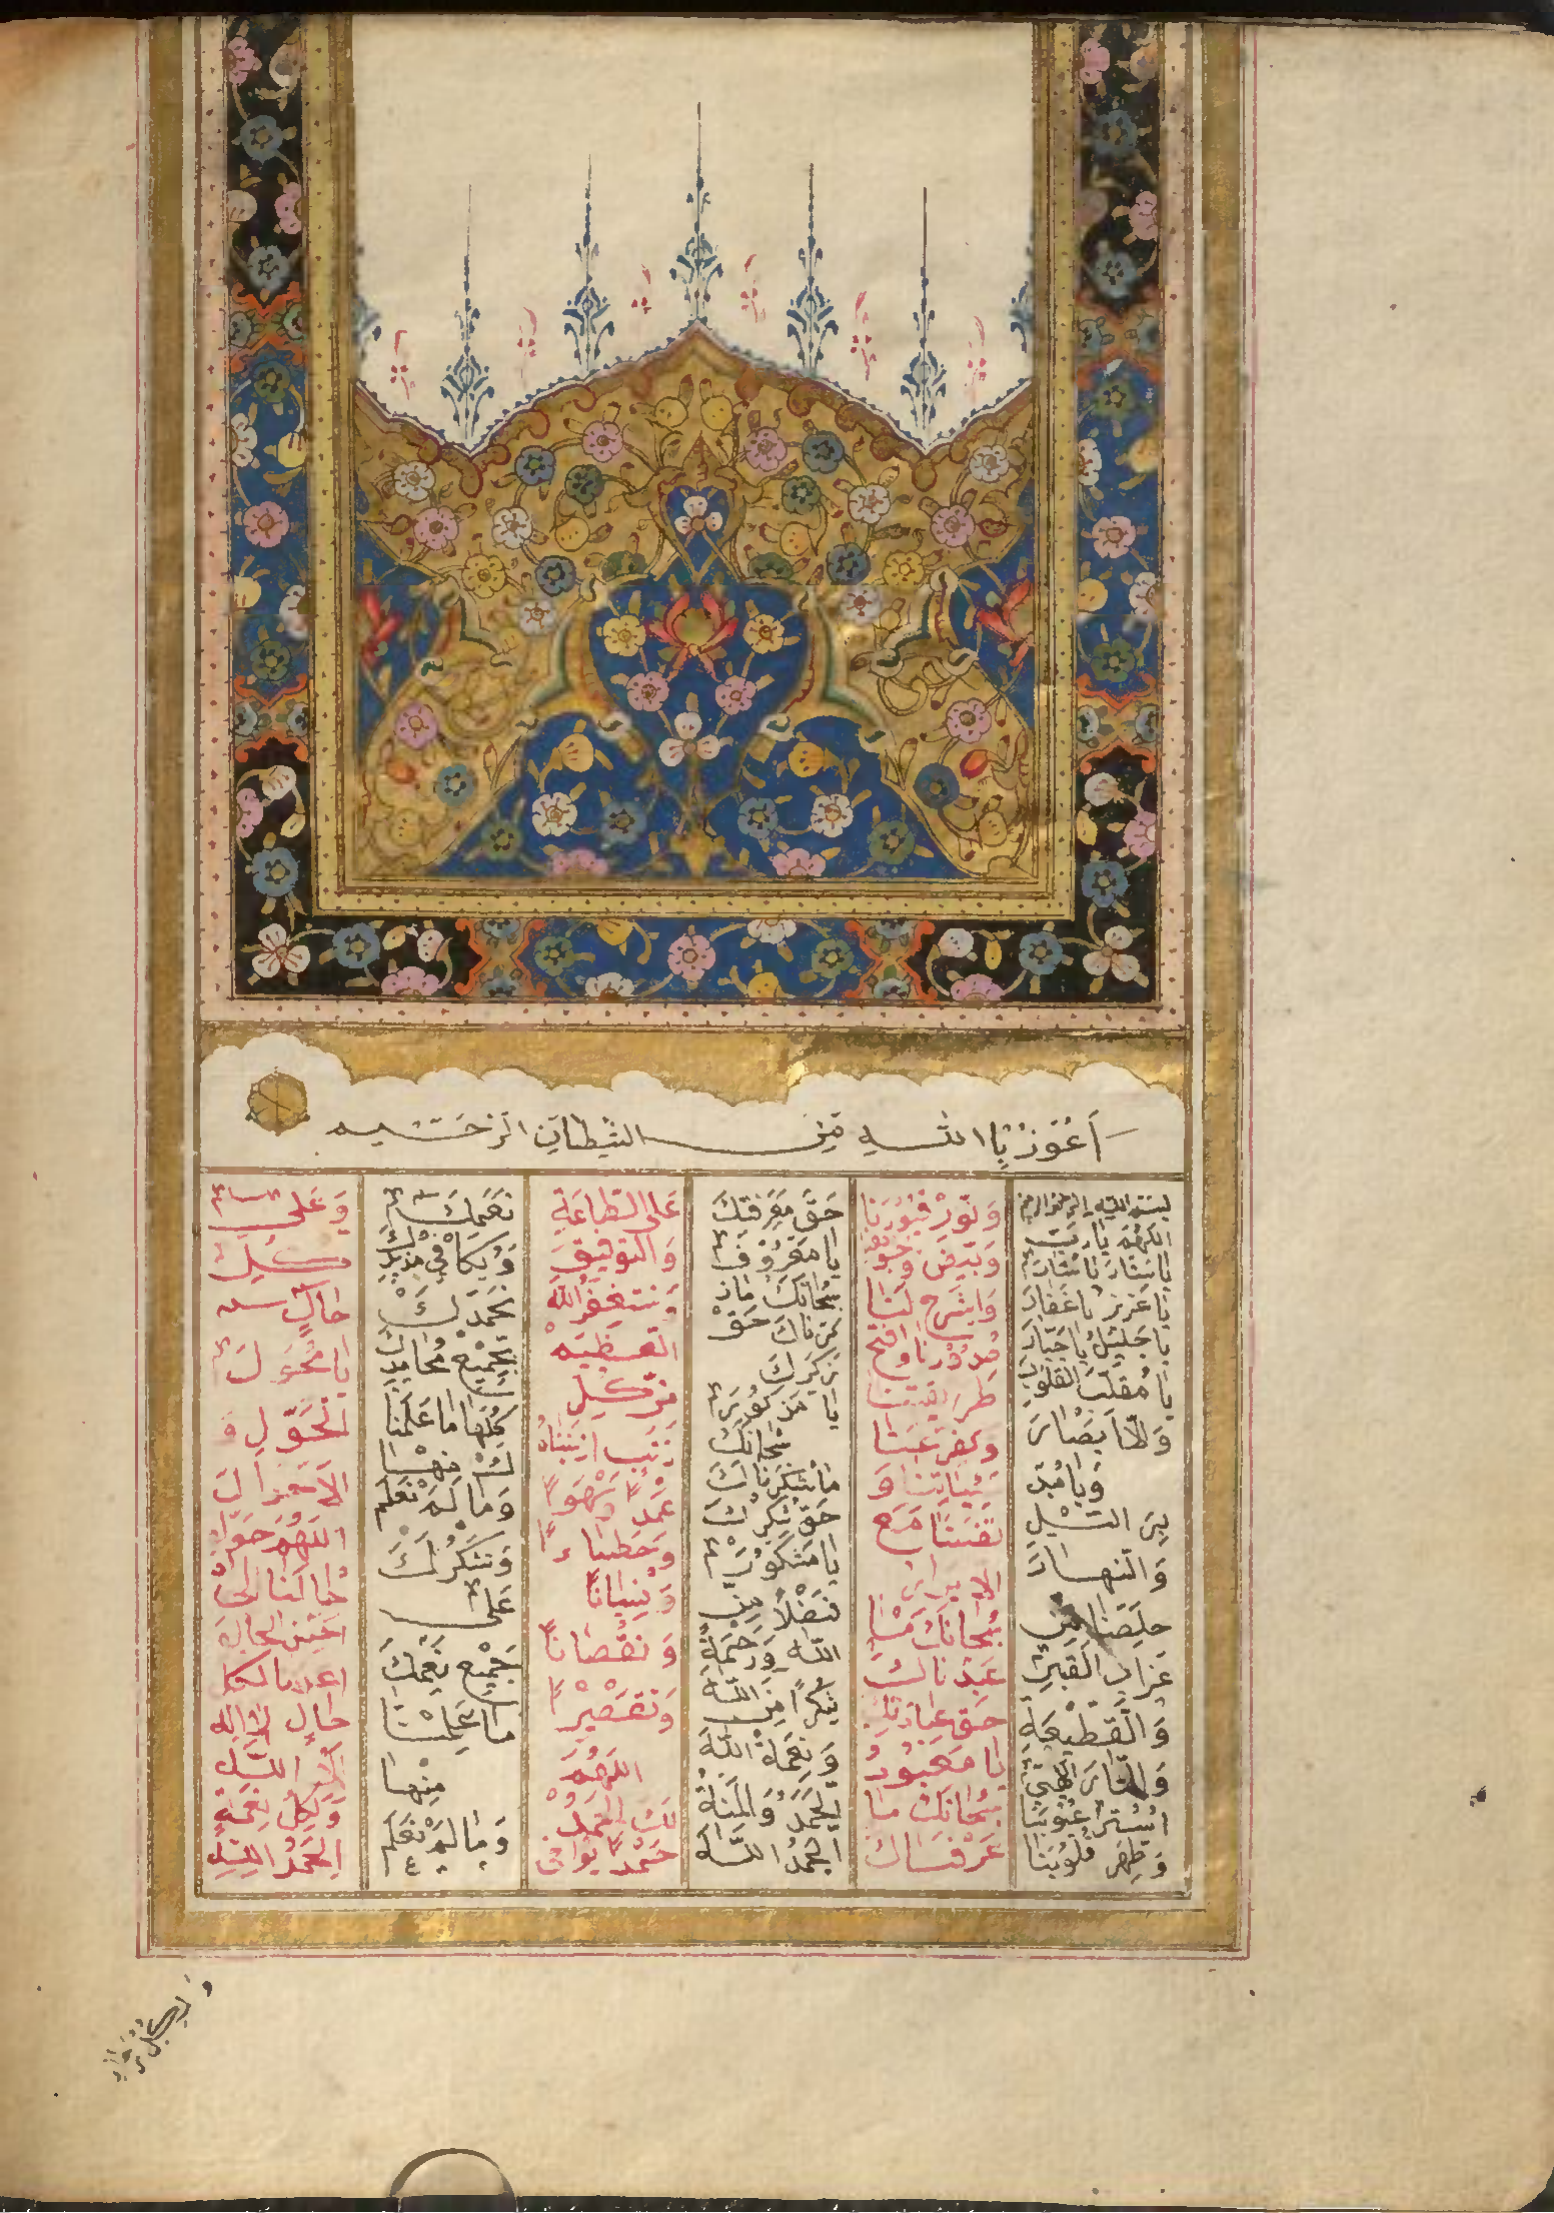 اَعُوذُ بِاالله مِن الشيطان الرجيم
بسم الله الرحمن الرحيم
اللهم يا رب
يا ستار يا ستار
يا عزيز يا غفار
يا جليل يا جبار
يا مقلب القلوب
والابصار
ويا مدبر
بين اليل
والنهار
خلصنا من
عزاب القبر
والقطيعة
والنار الهي
استر عيوبنا
وطهر قلوبنا
ونور قبورنا
وبيض وجوهنا
واشرح لنا
صدورنا وافتح
وكفر عنا
سيئاتنا و
توفنا مع
الابرار
سبحانك ما
عبدناك
حق عبادتك
يا معبود
سبحانك ما
عرفناك
حق معرفتك
يا معروف
سبحانك ما ذ
كرناك حق
ذكرك
يا مذكور
سبحانك
ما شكرناك
حق شكرك
يا مشكور
فضلا من
الله ورحمة
شكرا من الله
ونعمة الله
الحمد والمنة
الحمد الله
على الطاعة
والتوفيق
ونستغفر الله
العظيم
من كل
ذنب اذنبناه
عمدا وسهوا
وخطاء
ونسيانا
ونقصانا
وتقصيرا
اللهم
لك الحمد
حمدا يوافى
نعمك
ويكافي مزيد
نحمدك
بجميع محامد
كلها ما علمنا
منها
وما لم نعلم
ونشكرك
على
جميع نعمك
ما علمنا
منها
وما لم نعلم
وعلى
كل
حال
يا محول
الحول و
الاحوال
اللهم حول
حالنا الى
احسن الحال
حال
الله
ولكل نعمة
الحمد الله